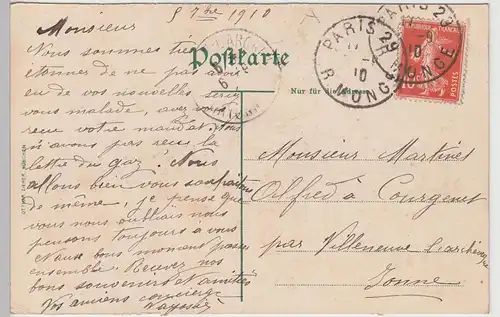 5 7bre 1910
Monsieur
Nous sommes très
étonner de ne pas avoir
eu de vos nouvelles serié
vous malade, avez vous
reçu votre mandat, vous
n'avons pas reçu la
lettre du gaz. Nous
allons bien vous souhaitons
de même, je pense que
vous nous oubliais nous
pensons toujours à vous
et aux bons moment passer
ensemble. Recevez nos
bons souvenirs et amitiés
Vos amiens concierge
Postkarte
Nur für die Adresse
PARIS 29
R MONGE
10
PARIS 29
R MONGE
10
POSTES
Monsieur Martinet
Alfred à Courgenet
par Villeneuve l'archevêque
Yonne